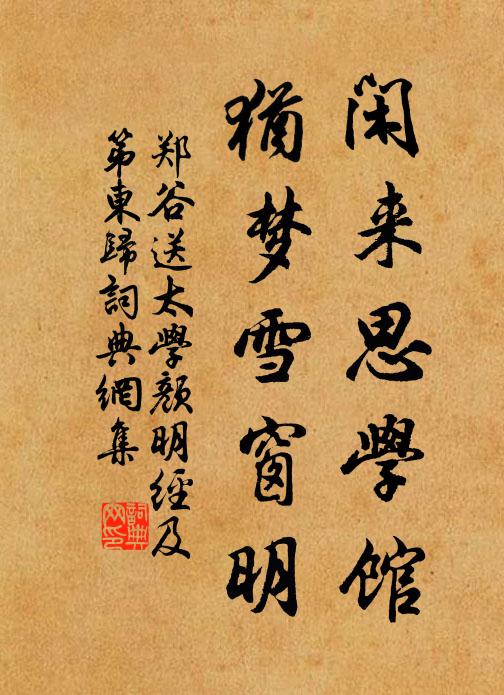 闲来思學馆
猶梦雪窗明
郑谷送太學颜明經及
第東歸詞典網集
詞典
网印